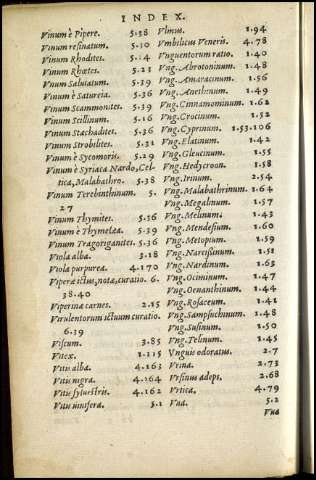 INDEX.
Vinum è Pipere. 5.38
Vinum resinatum. 5.30
Vinum Rhodites.
Vinum Rhœtes. 5.23
Vinum Saluiatum. 5.39
Vinum è Satureia. 5.36
Vinum Scammonites. 5.39
Vinum Scillinum. 5.16
Vinum Stachadites. 5.36
Vinum Strobilites. 5.31
Vinum è Sycomoris. 5.29
Vinum è Syriaca Nardo, Cel-
tica, Malabathro. 5.38
Vinum Terebinthinum. 5.
27
Vinum Thymites. 5.36
Vinum è Thymelæa. 5.39
Vinum Tragoriganites. 5.36
Viola alba. 3.18
Viola purpurea. 4.170
Viperæ ictus, nota, curatio. 6.
38.40
Viperina carnes. 2.15
Virulentorum ictuum curatio.
6.39
Viscum. 3.85
Vitex. 1.115
Vitis alba. 4.163
Vitis nigra. 4.164
Vitis sylvestris. 4.162
Vitis vinifera. 5.1
Vlmus. 1.94
Vmbilicus Veneris. 4.78
Vnguentorum ratio. 1.40
Vng. Abrotoninum. 1.48
Vng. Amaracinum. 1.56
Vng. Anethinum. 1.49
Vng. Cinnamominum. 1.62
Vng. Crocinum. 1.52
Vng. Cyprinum. 1.53.106
Vng. Elatinum. 1.42
Vng. Gleucinum. 1.55
Vng. Hedycroon. 1.58
Vng. Irinum. 1.54
Vng. Malabathrinum. 1.64
Vng. Megalinum. 1.57
Vng. Melinum. 1.43
Vng. Mendesium. 1.60
Vng. Metopium. 1.59
Vng. Narcissinum. 1.51
Vng. Nardinum. 1.63
Vng. Ociminum. 1.47
Vng. Oenanthinum. 1.44
Vng. Rosaceum. 1.41
Vng. Sampsuchinum. 1.48
Vng. Susinum. 1.50
Vng. Telinum. 1.45
Vnguis odoratus. 2.7
Vrina. 2.73
Vrsinus adeps. 2.68
Vrtica. 4.79
Vua. 5.2
Vua